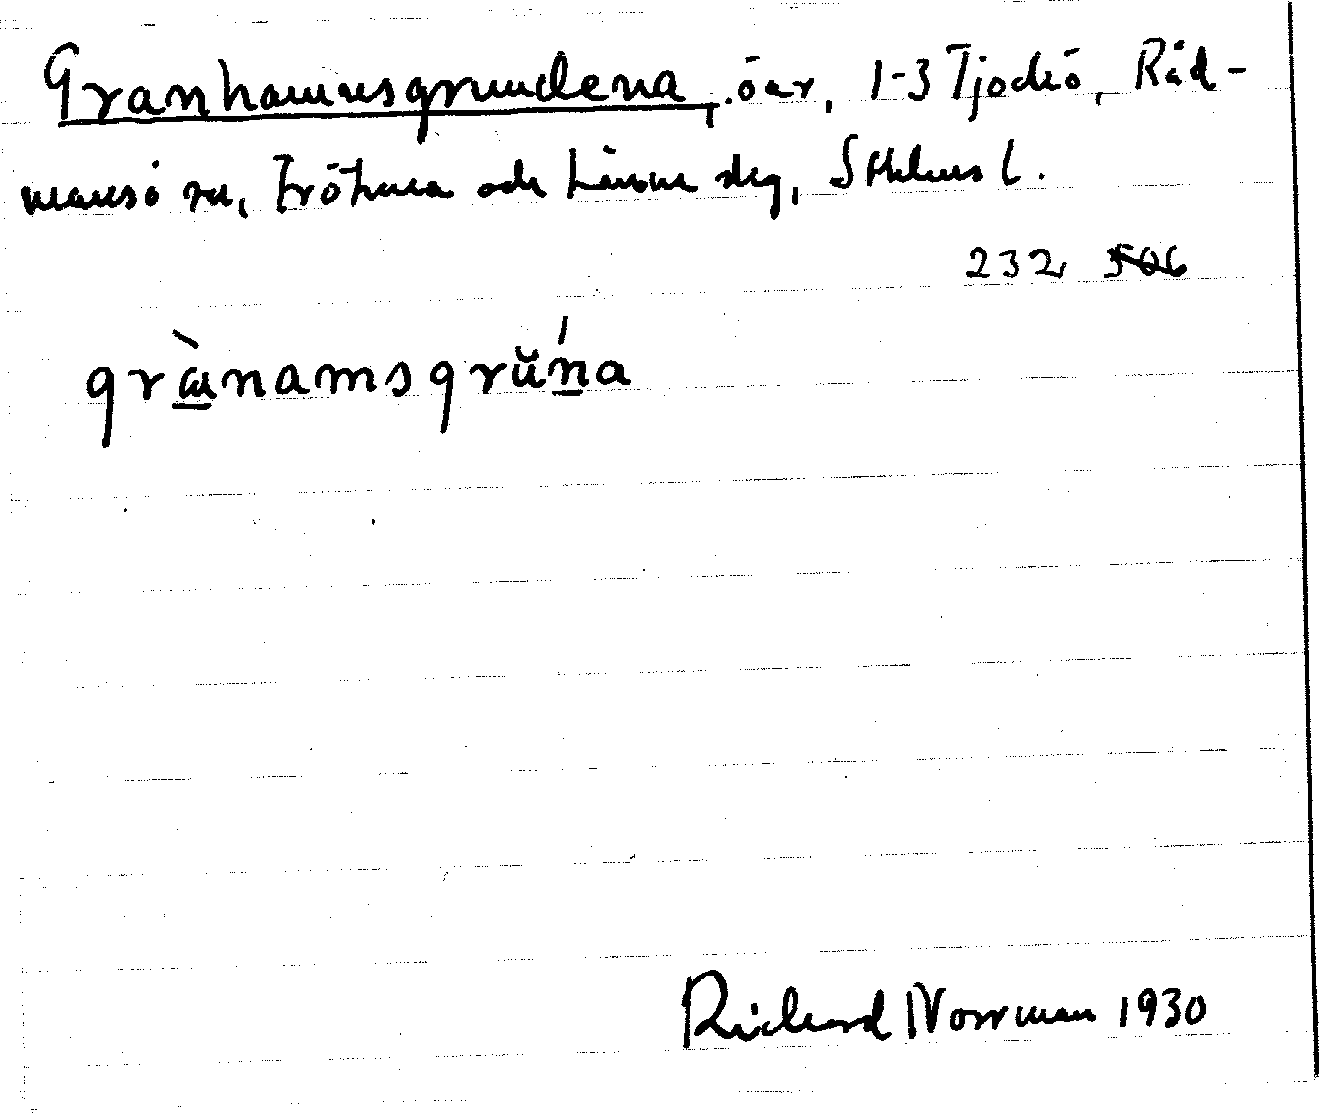 Granhamnsgrundena, öar, 1-3 Tjockö, Råd-
mansö sn, Frötuna och Länna slg, Sthlms l.
232, 506
grànamsgrŭńa
Richard Norrman 1930